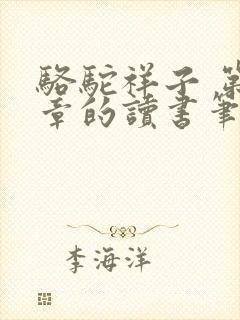 駱駝祥子 第
章的讀書筆
李海洋